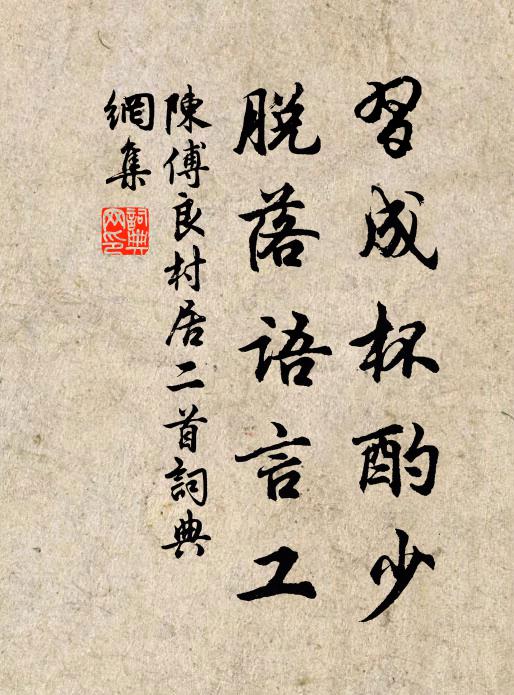 習成杯酌少
脱落語言工
陳傅良村居二首詞典
網集
詞典網印